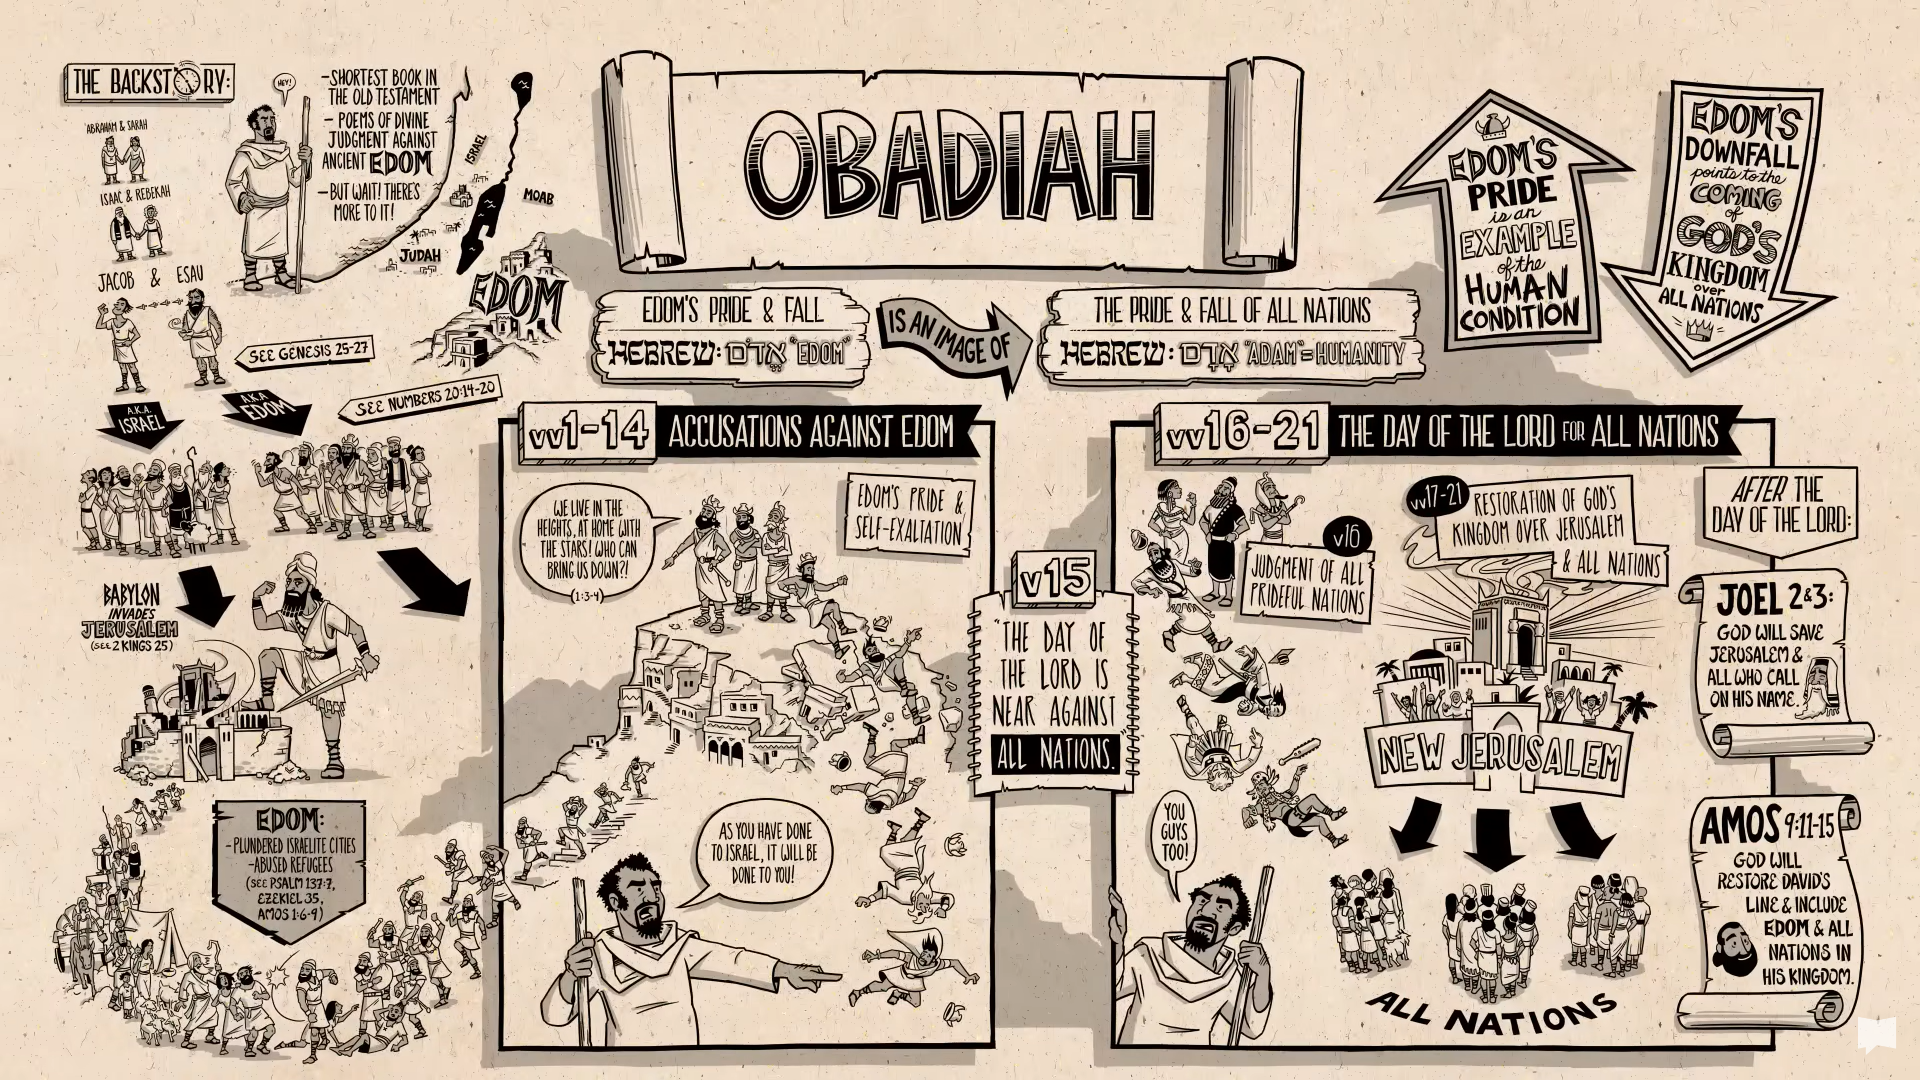 THE BACKSTORY:
HEY!
-SHORTEST BOOK IN
THE OLD TESTAMENT
- POEMS OF DIVINE
JUDGMENT AGAINST
ANCIENT EDOM
-BUT WAIT! THERE'S
MORE TO IT!
ABRAHAM & SARAH
ISAAC & REBEKAH
JACOB & ESAU
SEE GENESIS 25-27
SEE NUMBERS 20:14-20
A.K.A.
ISRAEL
A.K.A.
EDOM
ISRAEL
MOAB
JUDAH
EDOM
BABYLON
INVADES
JERUSALEM
(SEE 2 KINGS 25)
EDOM:
-PLUNDERED ISRAELITE CITIES
-ABUSED REFUGEES
(SEE PSALM 137:7,
EZEKIEL 35,
AMOS 1:6-9)
OBADIAH
EDOM'S PRIDE & FALL
HEBREW: אֱדֹם "EDOM"
IS AN IMAGE OF
THE PRIDE & FALL OF ALL NATIONS
HEBREW: אָדָם "ADAM"=HUMANITY
EDOM'S
PRIDE
is an
EXAMPLE
of the
HUMAN
CONDITION
EDOM'S
DOWNFALL
points to the
COMING
of
GOD'S
KINGDOM
over
ALL NATIONS
vv1-14 ACCUSATIONS AGAINST EDOM
WE LIVE IN THE
HEIGHTS, AT HOME WITH
THE STARS! WHO CAN
BRING US DOWN?!
(1:3-4)
EDOM'S PRIDE &
SELF-EXALTATION
AS YOU HAVE DONE
TO ISRAEL, IT WILL BE
DONE TO YOU!
v15
"THE DAY OF
THE LORD IS
NEAR AGAINST
ALL NATIONS."
vv16-21 THE DAY OF THE LORD FOR ALL NATIONS
v16
JUDGMENT OF ALL
PRIDEFUL NATIONS
YOU
GUYS
TOO!
vv17-21 RESTORATION OF GOD'S
KINGDOM OVER JERUSALEM
& ALL NATIONS
NEW JERUSALEM
ALL NATIONS
AFTER THE
DAY OF THE LORD:
JOEL 2&3:
GOD WILL SAVE
JERUSALEM &
ALL WHO CALL
ON HIS NAME.
AMOS 9:11-15
GOD WILL
RESTORE DAVID'S
LINE & INCLUDE
EDOM & ALL
NATIONS IN
HIS KINGDOM.